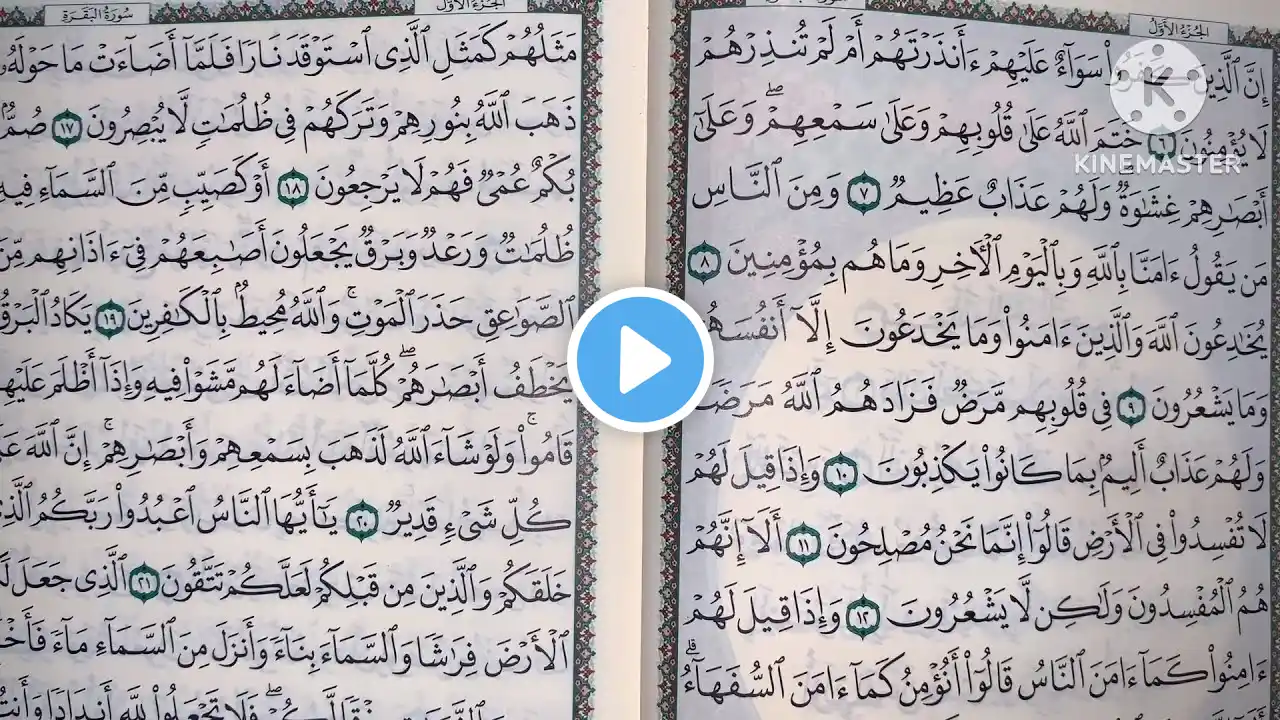 الجزء الأول
إِنَّ ٱلَّذِينَ كَفَرُوا۟ سَوَآءٌ عَلَيْهِمْ ءَأَنذَرْتَهُمْ أَمْ لَمْ تُنذِرْهُمْ
لَا يُؤْمِنُونَ ٦ خَتَمَ ٱللَّهُ عَلَىٰ قُلُوبِهِمْ وَعَلَىٰ سَمْعِهِمْ ۖ وَعَلَىٰٓ
أَبْصَٰرِهِمْ غِشَٰوَةٌ وَلَهُمْ عَذَابٌ عَظِيمٌ ٧ وَمِنَ ٱلنَّاسِ
مَن يَقُولُ ءَامَنَّا بِٱللَّهِ وَبِٱلْيَوْمِ ٱلْأَخِرِ وَمَا هُم بِمُؤْمِنِينَ ٨
يُخَٰدِعُونَ ٱللَّهَ وَٱلَّذِينَ ءَامَنُوا۟ وَمَا يَخْدَعُونَ إِلَّآ أَنفُسَهُ
وَمَا يَشْعُرُونَ ٩ فِى قُلُوبِهِم مَّرَضٌ فَزَادَهُمُ ٱللَّهُ مَرَضًا
وَلَهُمْ عَذَابٌ أَلِيمٌۢ بِمَا كَانُوا۟ يَكْذِبُونَ ١٠ وَإِذَا قِيلَ لَهُمْ
لَا تُفْسِدُوا۟ فِى ٱلْأَرْضِ قَالُوٓا۟ إِنَّمَا نَحْنُ مُصْلِحُونَ ١١ أَلَآ إِنَّهُمْ
هُمُ ٱلْمُفْسِدُونَ وَلَٰكِن لَّا يَشْعُرُونَ ١٢ وَإِذَا قِيلَ لَهُمْ
ءَامِنُوا۟ كَمَآ ءَامَنَ ٱلنَّاسُ قَالُوٓا۟ أَنُؤْمِنُ كَمَآ ءَامَنَ ٱلسُّفَهَآءُ ۗ
الجزء الأول
سورة البقرة
مَثَلُهُمْ كَمَثَلِ ٱلَّذِى ٱسْتَوْقَدَ نَارًا فَلَمَّآ أَضَآءَتْ مَا حَوْلَهُۥ
ذَهَبَ ٱللَّهُ بِنُورِهِمْ وَتَرَكَهُمْ فِى ظُلُمَٰتٍ لَّا يُبْصِرُونَ ١٧ صُمٌّۢ
بُكْمٌ عُمْىٌ فَهُمْ لَا يَرْجِعُونَ ١٨ أَوْ كَصَيِّبٍ مِّنَ ٱلسَّمَآءِ فِيهِ
ظُلُمَٰتٌ وَرَعْدٌ وَبَرْقٌ يَجْعَلُونَ أَصَٰبِعَهُمْ فِىٓ ءَاذَانِهِم مِّنَ
ٱلصَّوَٰعِقِ حَذَرَ ٱلْمَوْتِ ۚ وَٱللَّهُ مُحِيطٌۢ بِٱلْكَٰفِرِينَ ١٩ يَكَادُ ٱلْبَرْقُ
يَخْطَفُ أَبْصَٰرَهُمْ ۖ كُلَّمَآ أَضَآءَ لَهُم مَّشَوْا۟ فِيهِ وَإِذَآ أَظْلَمَ عَلَيْهِ
قَامُوا۟ ۚ وَلَوْ شَآءَ ٱللَّهُ لَذَهَبَ بِسَمْعِهِمْ وَأَبْصَٰرِهِمْ ۚ إِنَّ ٱللَّهَ
كُلِّ شَىْءٍ قَدِيرٌ ٢٠ يَٰٓأَيُّهَا ٱلنَّاسُ ٱعْبُدُوا۟ رَبَّكُمُ
خَلَقَكُمْ وَٱلَّذِينَ مِن قَبْلِكُمْ لَعَلَّكُمْ تَتَّقُونَ ٢١ ٱلَّذِى جَعَلَ
ٱلْأَرْضَ فِرَٰشًا وَٱلسَّمَآءَ بِنَآءً وَأَنزَلَ مِنَ ٱلسَّمَآءِ مَآءً
فَلَا تَجْعَلُوا۟ لِلَّهِ أَندَادًا
KINEMASTER